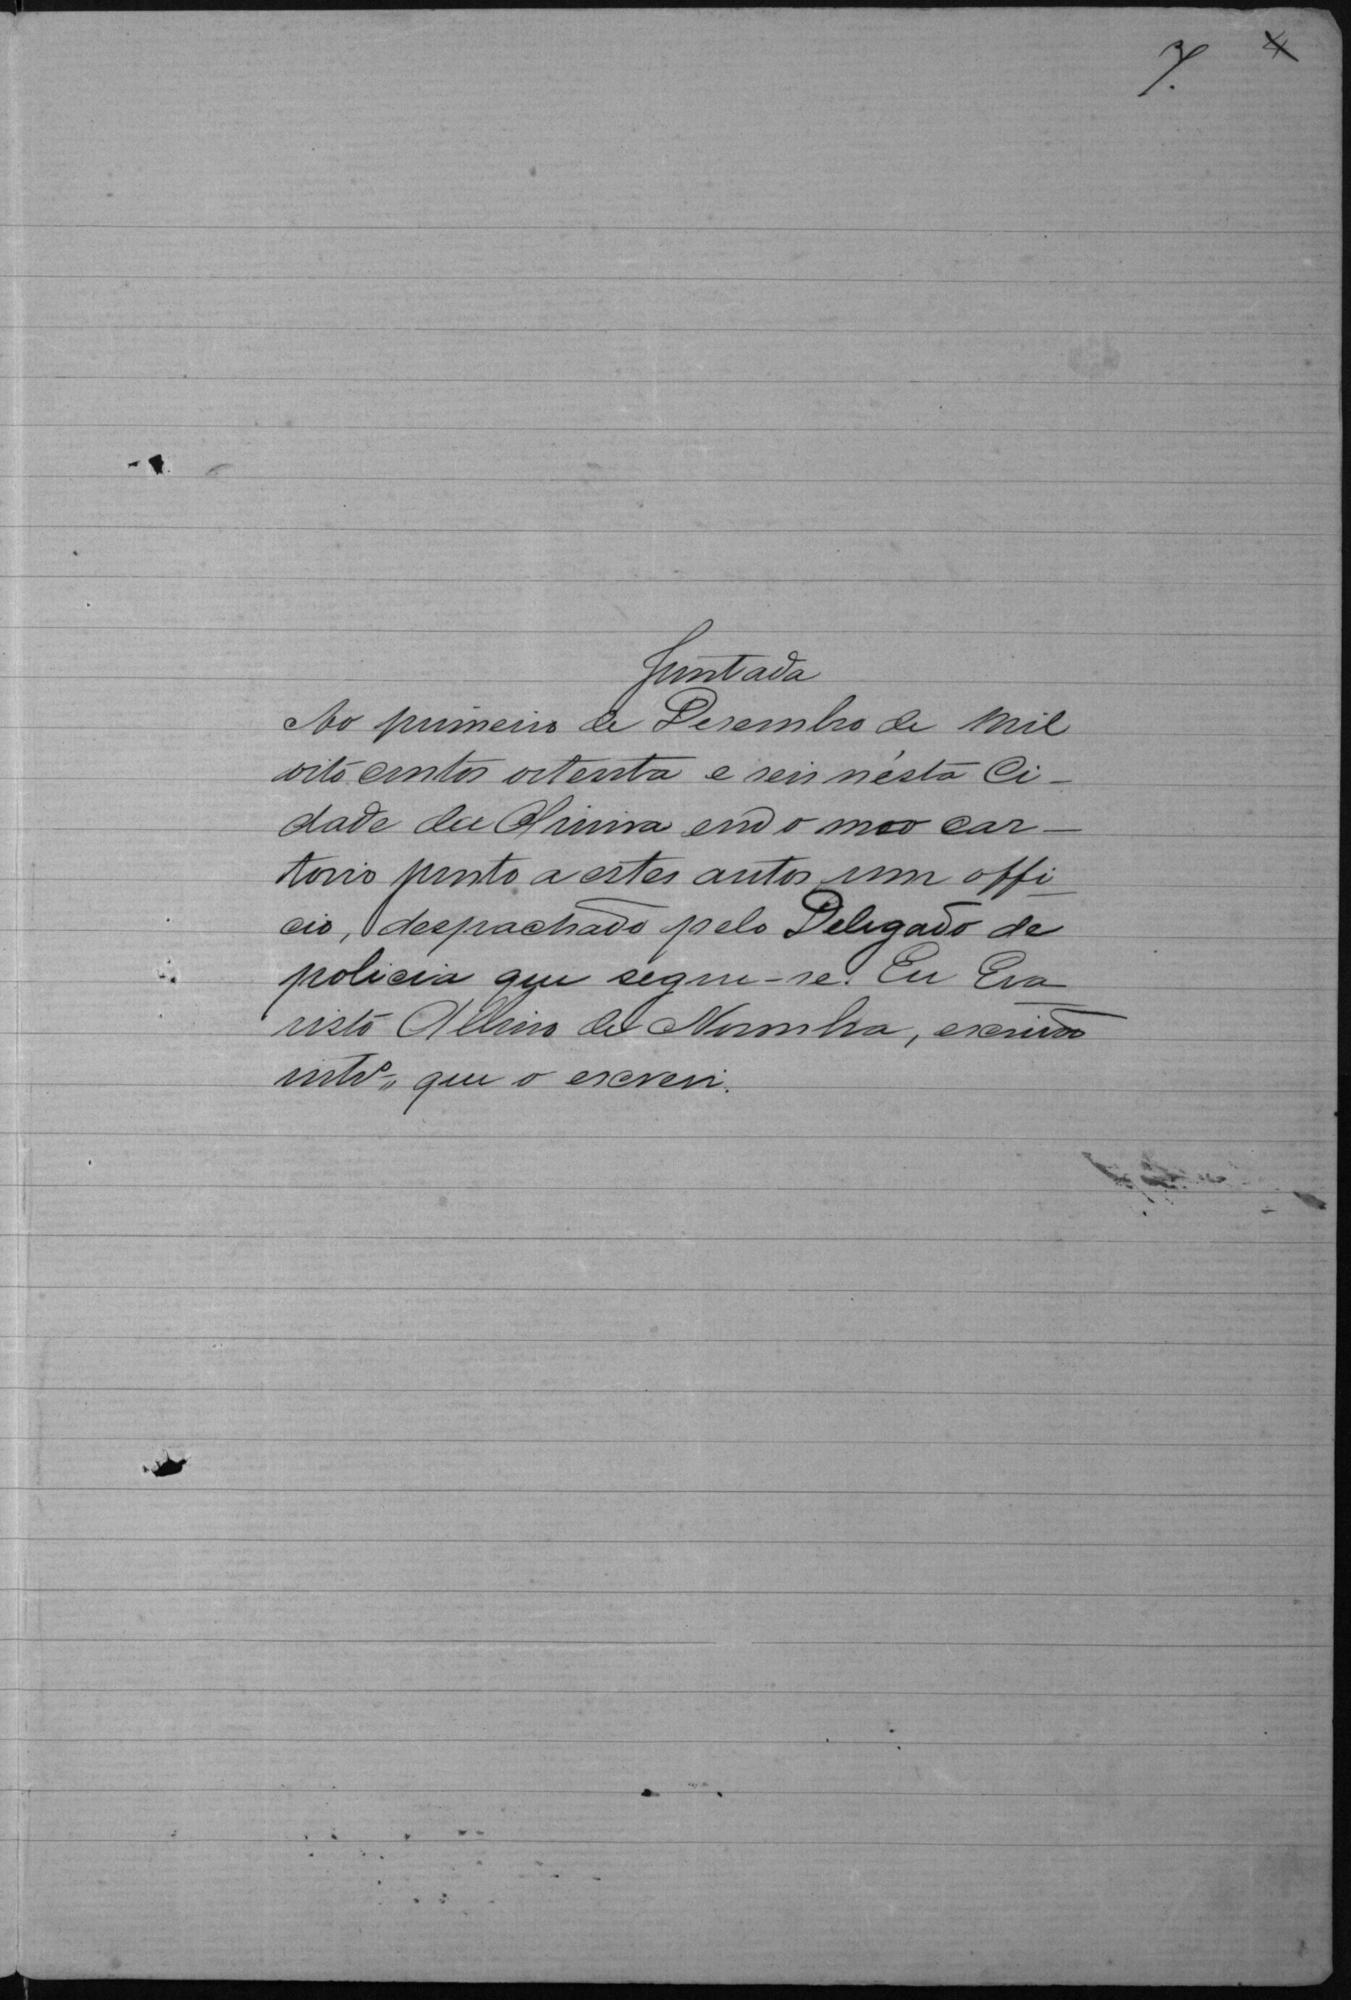 7. 4
Juntada
Ao primeiro de Desembro de mil
oito centos oitenta e seis nésta Ci-
dade de em o meo car-
torio junto a estes autos um offi-
cio, despachado pelo Delegado de
policia que segue-se. Eu Eva
risto Albino de Noronha, escrivão
intº,, que o escrevi.